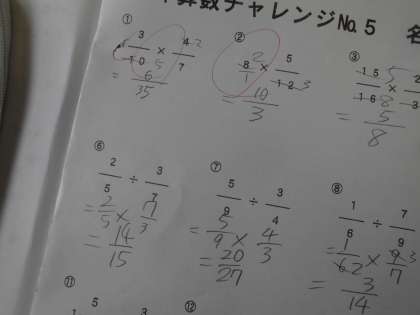 算数チャレンジNo.5 名
① 3/10 × 4/7 5 2
= 6/35
② 8 × 5/12 2 1 3
= 10/3
③ 15/16 × 2 5 8
= 5/8
⑥ 2/5 ÷ 3/7
= 2/5 × 7/3
= 14/15
⑦ 5/9 ÷ 3/4
= 5/9 × 4/3
= 20/27
⑧ 1/6 ÷ 7/9
= 1/6 × 9/7 2 3
= 3/14
⑪ 5 3
⑫